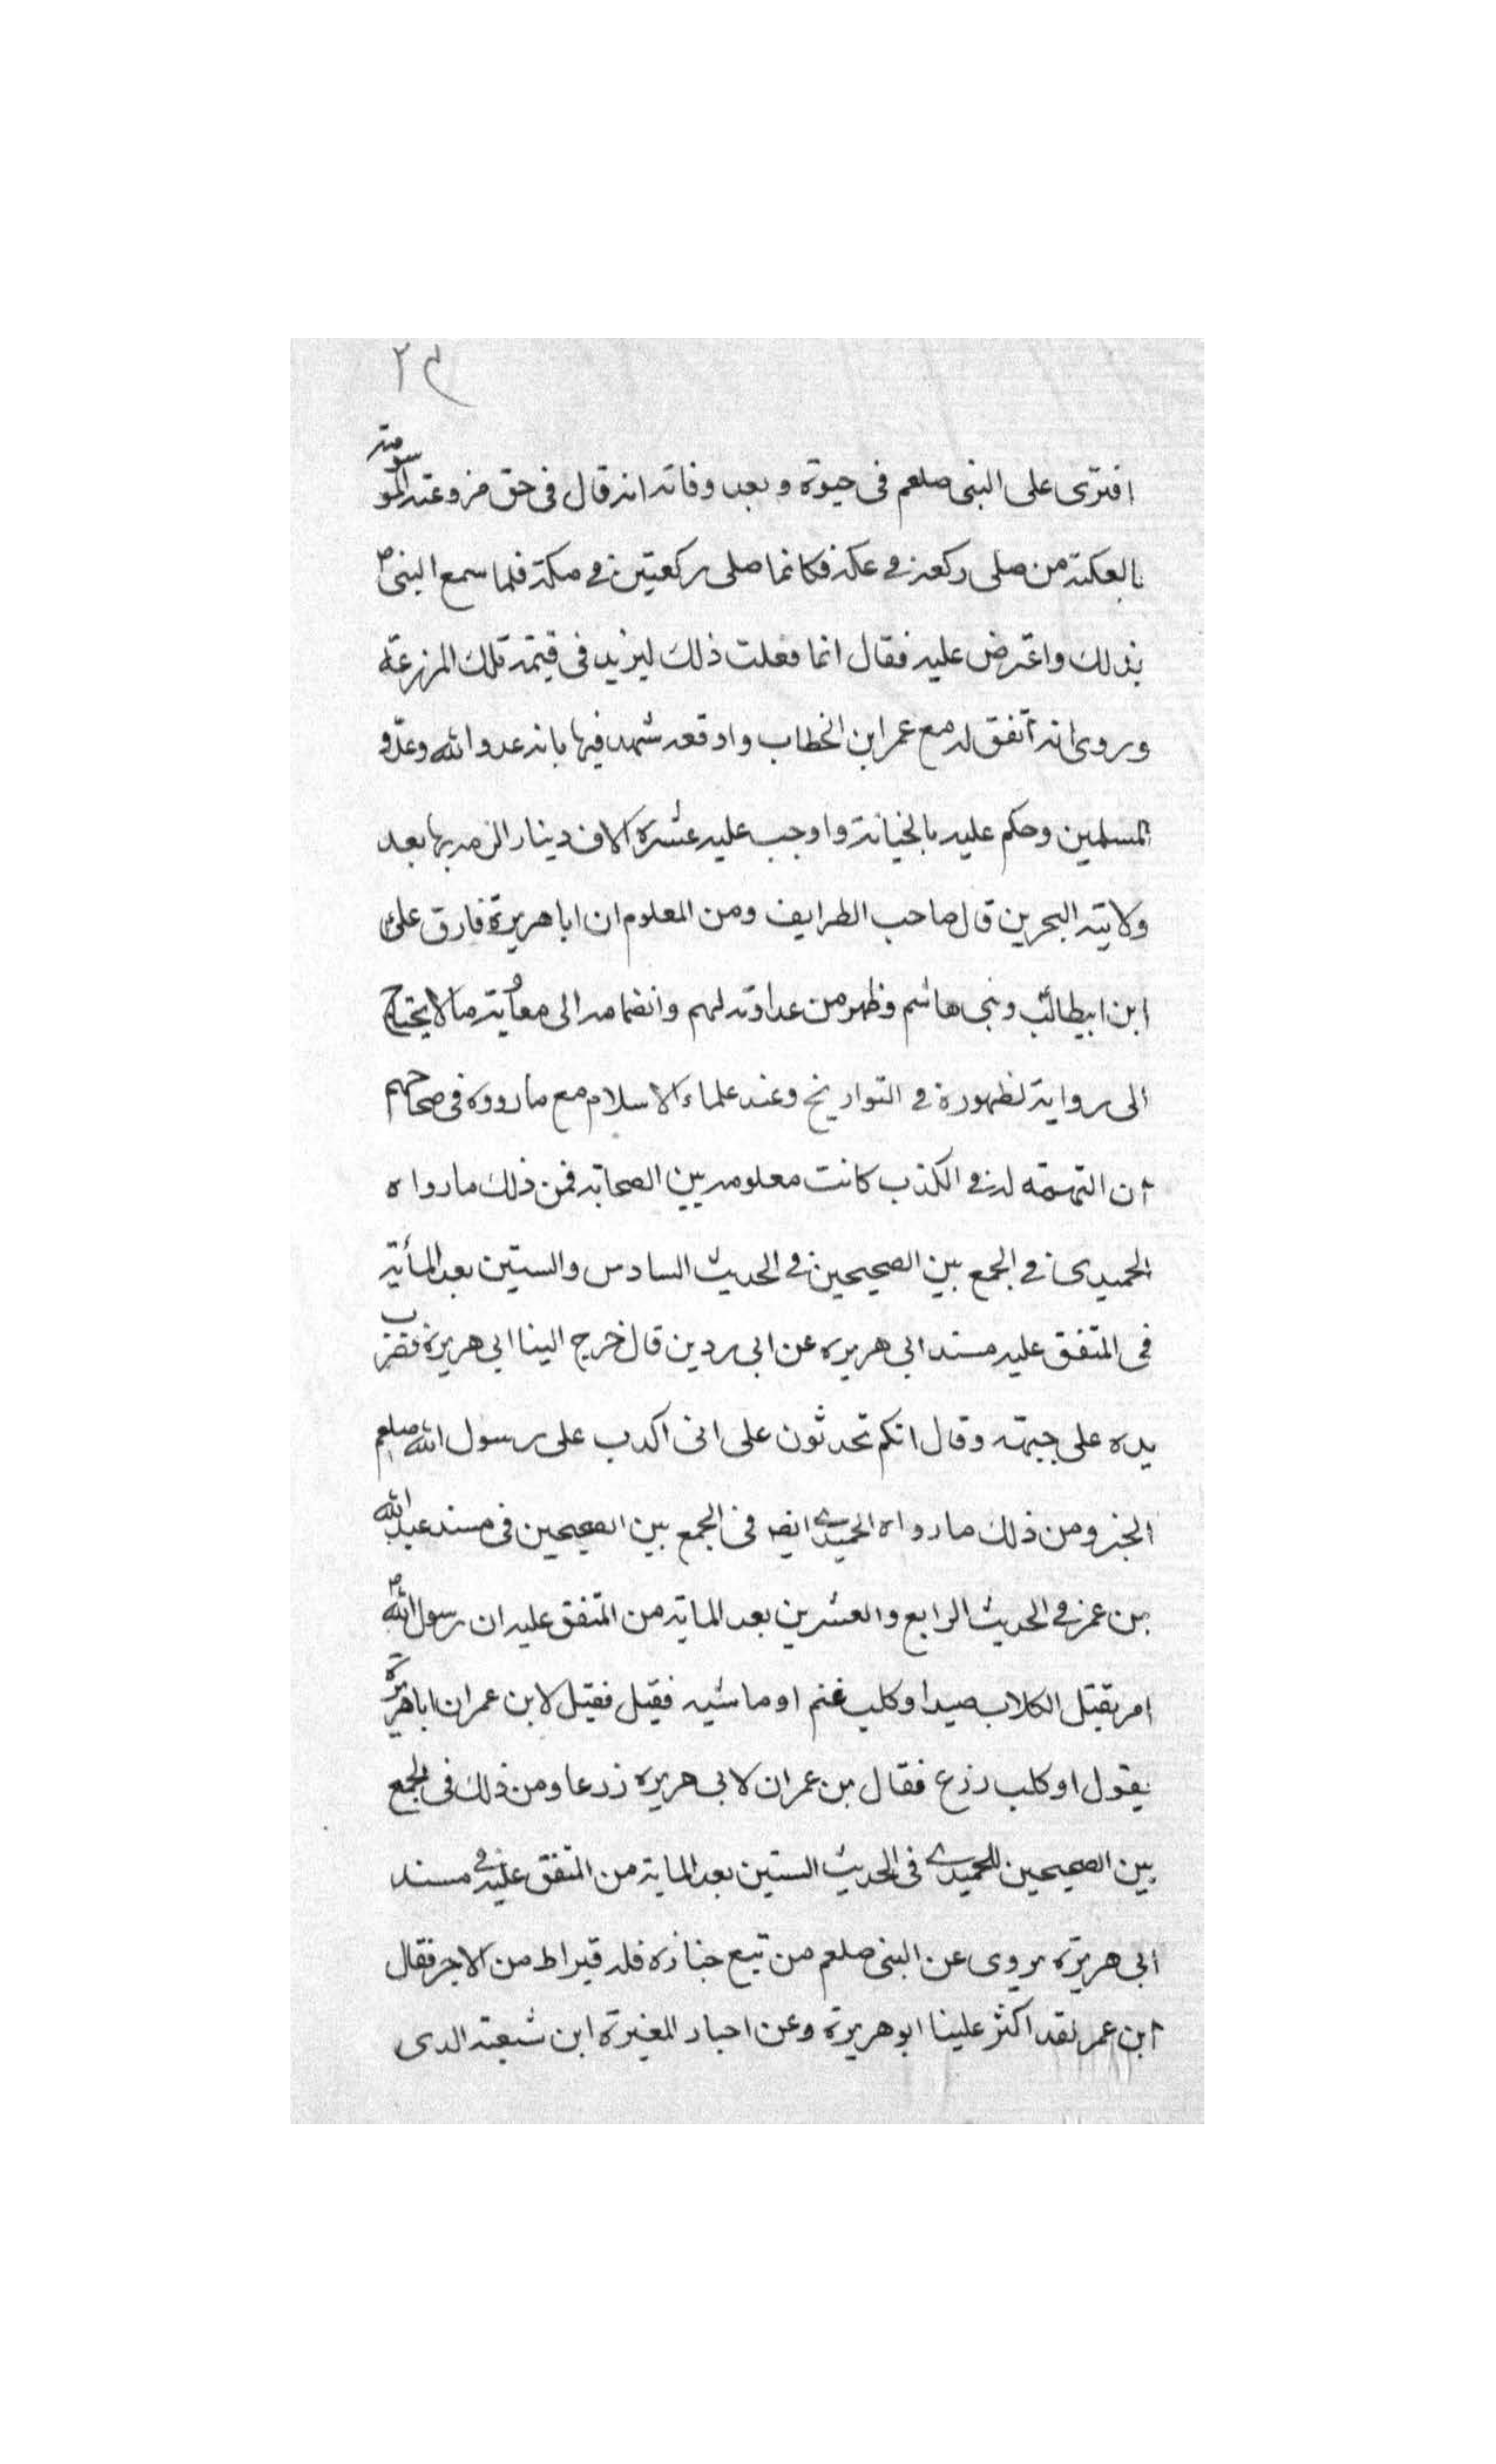 افترى على النبى صلعم فى حيوته وبعد وفاته انه قال فى حق مزوعته الموسومته
بالعكته من صلى ركعة فى عكة فكانما صلى ركعتين فى مكة فلما سمع النبى ص
بذلك واعترض عليه فقال انما فعلت ذلك ليزيد فى قيمته تلك المزرعة
وروى انه أتفق له مع عمر ابن الخطاب واوقعه شهد فيها بانه عدو الله وعدو
المسلمين وحكم عليه بالخيانة واوجب عليه عشرة الاف دينار الزمه بها بعد
ولايته البحرين قال صاحب الطرايف ومن المعلوم ان ابا هريرة فارق على
ابن ابيطالب وبنى هاشم وظهر من عداوته لهم وانضمامه الى معوية ما لا يحتاج
الى رواية لظهوره فى التواريخ وعند علماء الاسلام مع ما رووه فى صحاحهم
أن التهمة له فى الكذب كانت معلومه بين الصحابه فمن ذلك ما رواه
الحميدى فى الجمع بين الصحيحين فى الحديث السادس والستين بعد المأية
فى المتفق عليه مسند ابى هريره عن ابى ردين قال خرج الينا ابى هريرة فقرب
يده على جبهته وقال انكم تحدثون على انى اكدب على رسول الله صلعم
الخبر ومن ذلك ما رواه الحميدى ايضه فى الجمع بين الصحيحين فى مسند عبد الله
بن عمر فى الحديث الرابع والعشرين بعد الماية من المتفق عليه ان رسول الله ص
امر بقتل الكلاب صيدا وكلب غنم او ماشيه فقيل فقيل لابن عمر ان ابا هريرة
يقول او كلب رزع فقال بن عمر ان لابى هريره زرعا ومن ذلك فى الجمع
بين الصحيحين للحميدى فى الحديث الستين بعد الماية من المتفق عليه فى مسند
ابى هريرة يروى عن النبى صلعم من تبع جنازه فله قيراط من الاجر فقال
أبن عمر لقد اكثر علينا ابو هريرة وعن احبار المغيرة ابن شبعته الدى